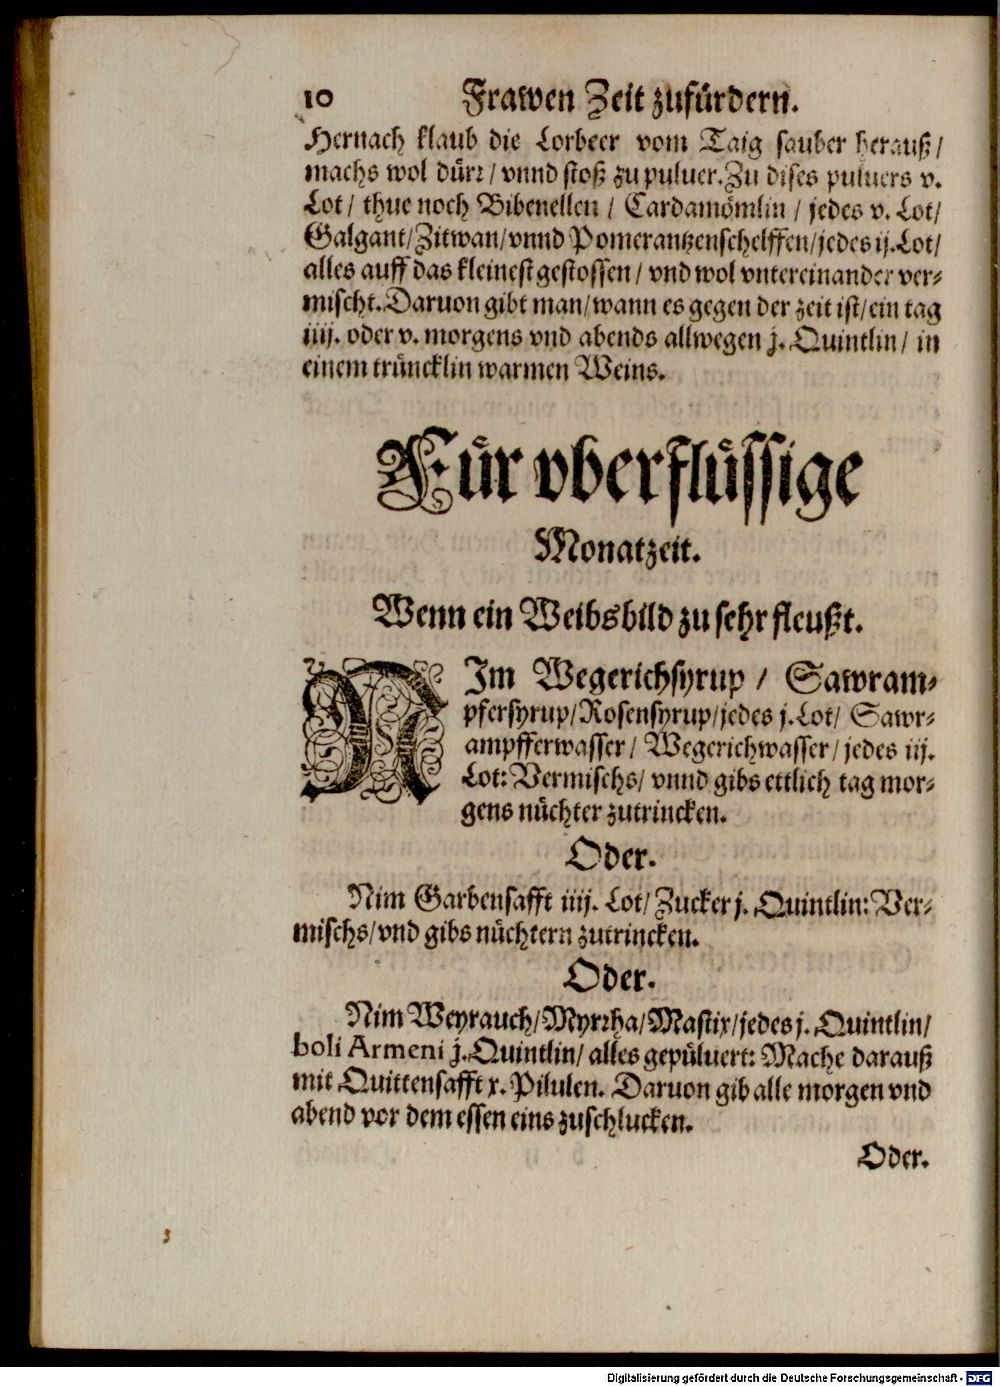 10 Frawen Zeit zufürdern.
Hernach klaub die Lorbeer vom Taig sauber herauß/
machs wol dürr/ vnnd stoß zu puluer. Zu dises puluers v.
Lot/ thue noch Bibenellen/ Cardamömlin/ jedes v. Lot/
Galgant/ Zitwan/ vnnd Pomerantzenschelffen/ jedes ij. Lot/
alles auff das kleinest gestossen/ vnd wol vntereinander ver-
mischt. Daruon gibt man/ wann es gegen der zeit ist/ ein tag
iiij. oder v. morgens vnd abends allwegen j. Quintlin/ in
einem trüncklin warmen Weins.
Für vberflüssige
Monatzeit.
Wenn ein Weibsbild zu sehr fleußt.
NIm Wegerichsyrup/ Sawram-
pfersyrup/ Rosensyrup/ jedes j. Lot/ Sawr-
ampfferwasser/ Wegerichwasser/ jedes iij.
Lot: Vermischs/ vnnd gibs ettlich tag mor-
gens nüchter zutrincken.
Oder.
Nim Garbensafft iiij. Lot/ Zucker j. Quintlin: Ver-
mischs/ vnd gibs nüchtern zutrincken.
Oder.
Nim Weyrauch/ Myrrha/ Mastix/ jedes j. Quintlin/
boli Armeni j. Quintlin/ alles gepülvert: Mache darauß
mit Quittensafft x. Pilulen. Daruon gib alle morgen vnd
abend vor dem essen eins zuschlucken.
Oder.
Digitalisierung gefördert durch die Deutsche Forschungsgemeinschaft - DFG